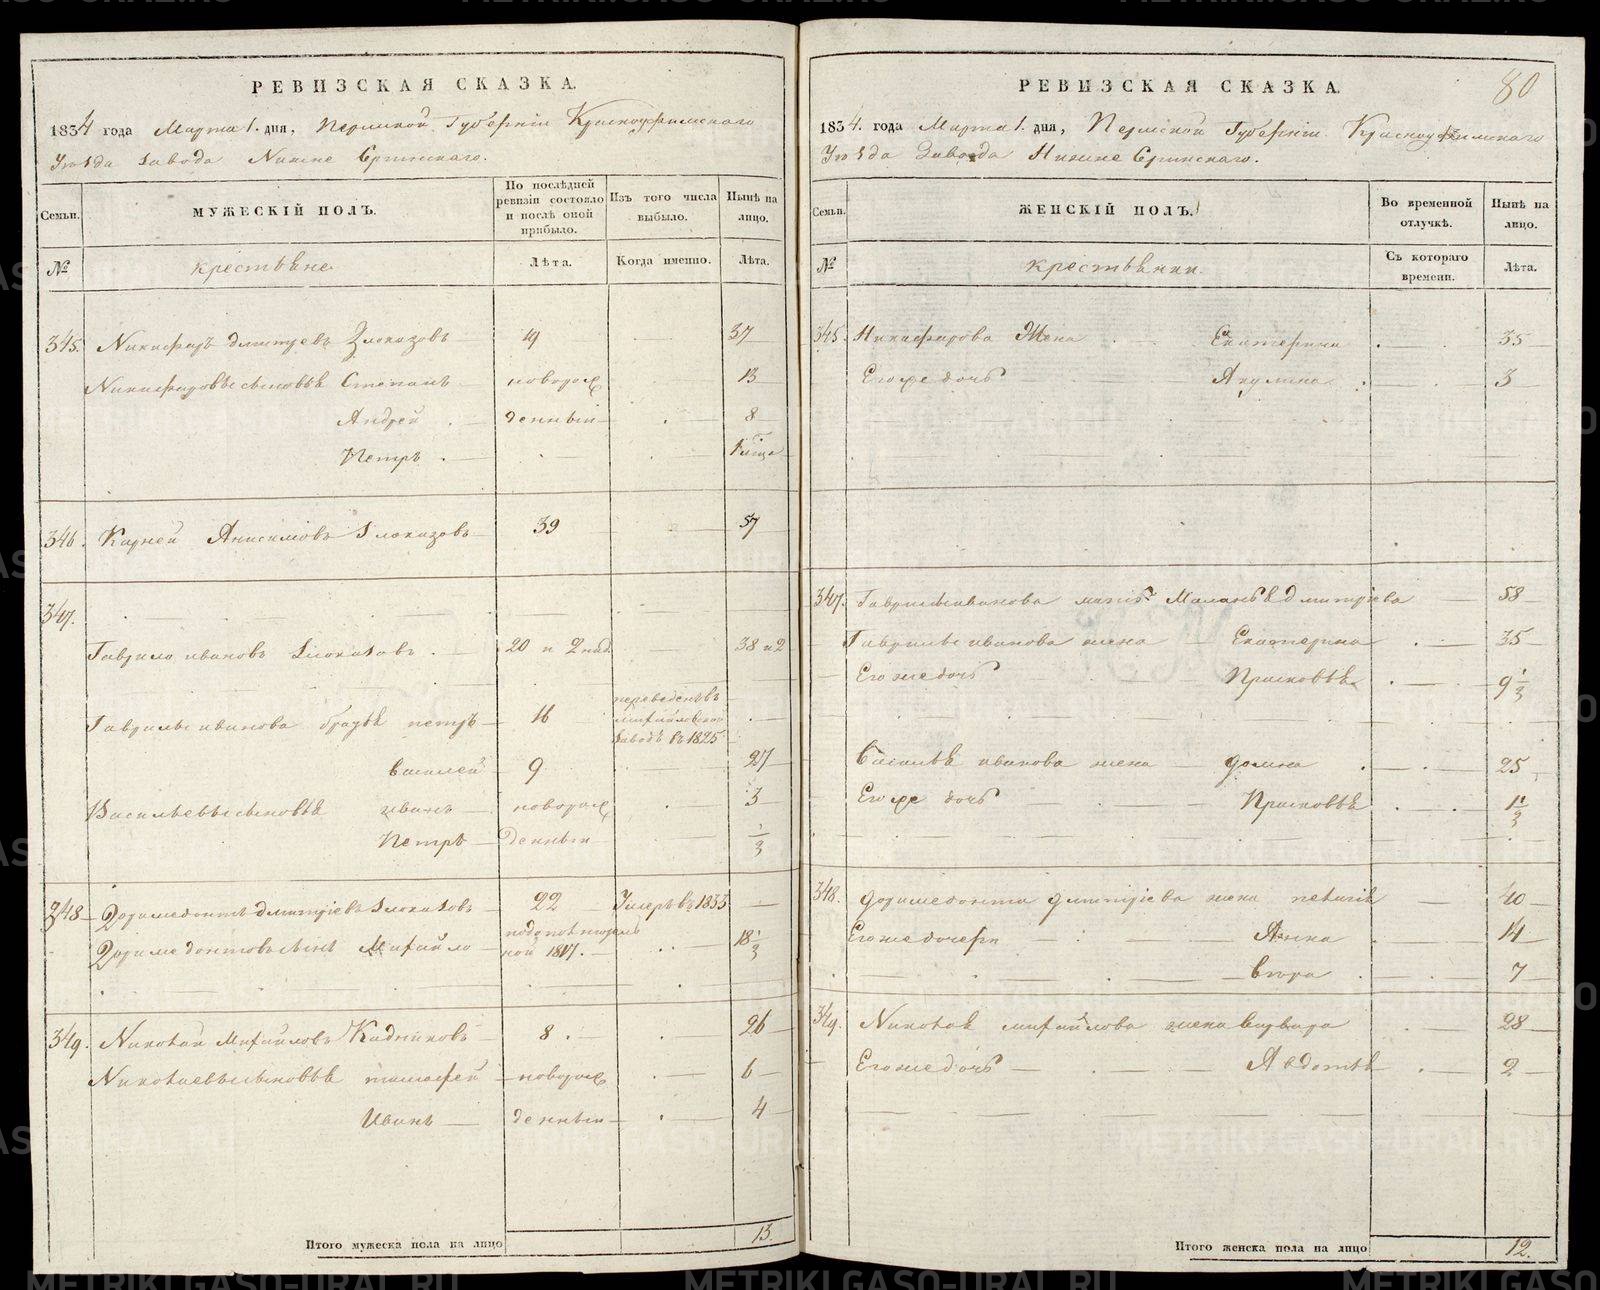 РЕВИЗСКАЯ СКАЗКА.
1834 года Марта 1. дня, Пермской Губерніи Красноуфимскаго
Уѣзда завода Нижне Сергинскаго.
Семьи. МУЖЕСКІЙ ПОЛЪ. По послѣдней ревизіи состояло и послѣ оной прибыло. Изъ того числа выбыло. Нынѣ на лицо.
№ крестьяне. Лѣта. Когда именно. Лѣта.
345. Никифоръ дмитріевъ Злоказовъ 19 37
Никифоровы сыновья Степанъ новорож 13
Андрей денныи 8
Петръ
346. Карней Анисимовъ Злоказовъ 39 57
347.
Гаврило ивановъ Злоказовъ 20 и 2 над 38 и 2
Гаврилы иванова братья петръ 16 переведенъ въ михайловской заводъ въ 1825
василей 9 27
Васильевы сыновья иванъ новорож 3
Петръ денныи 1/3
348 Доримедонтъ дмитріевъ Злоказовъ 22 Умеръ въ 1833
Доримедонтовъ сынъ Михайло 18 1/3
349. Николай Михайловъ Кадниковъ 8 26
Николаевы сыновья тимофей новорож 6
Иванъ денныи 4
Итого мужеска пола на лицо 13.
80
РЕВИЗСКАЯ СКАЗКА.
1834. года Марта 1. дня, Пермской Губерніи Красноуфимскаго
Уѣзда Завода Нижне Сергинскаго.
Семьи. ЖЕНСКІЙ ПОЛЪ. Во временной отлучкѣ. Нынѣ на лицо.
№ крестьянки. Съ котораго времени. Лѣта.
345. Никифорова Жена Екатерина 35
Его же дочь Акулина 3
347. Гаврилы иванова мать Маланья дмитріева 58
Гаврилы иванова жена Екатерина 35
Его же дочь Прасковья 9 1/3
Василья иванова жена домна 25
Его же дочь Прасковья 1 1/3
348. доримедонта дмитріева жена 40
Его же дочери Анна 14
7
349. Николая михайлова жена варвара 28
Его же дочь Авдотья 2
Итого женска пола на лицо 12.
METRIKI.GASO-URAL.RU